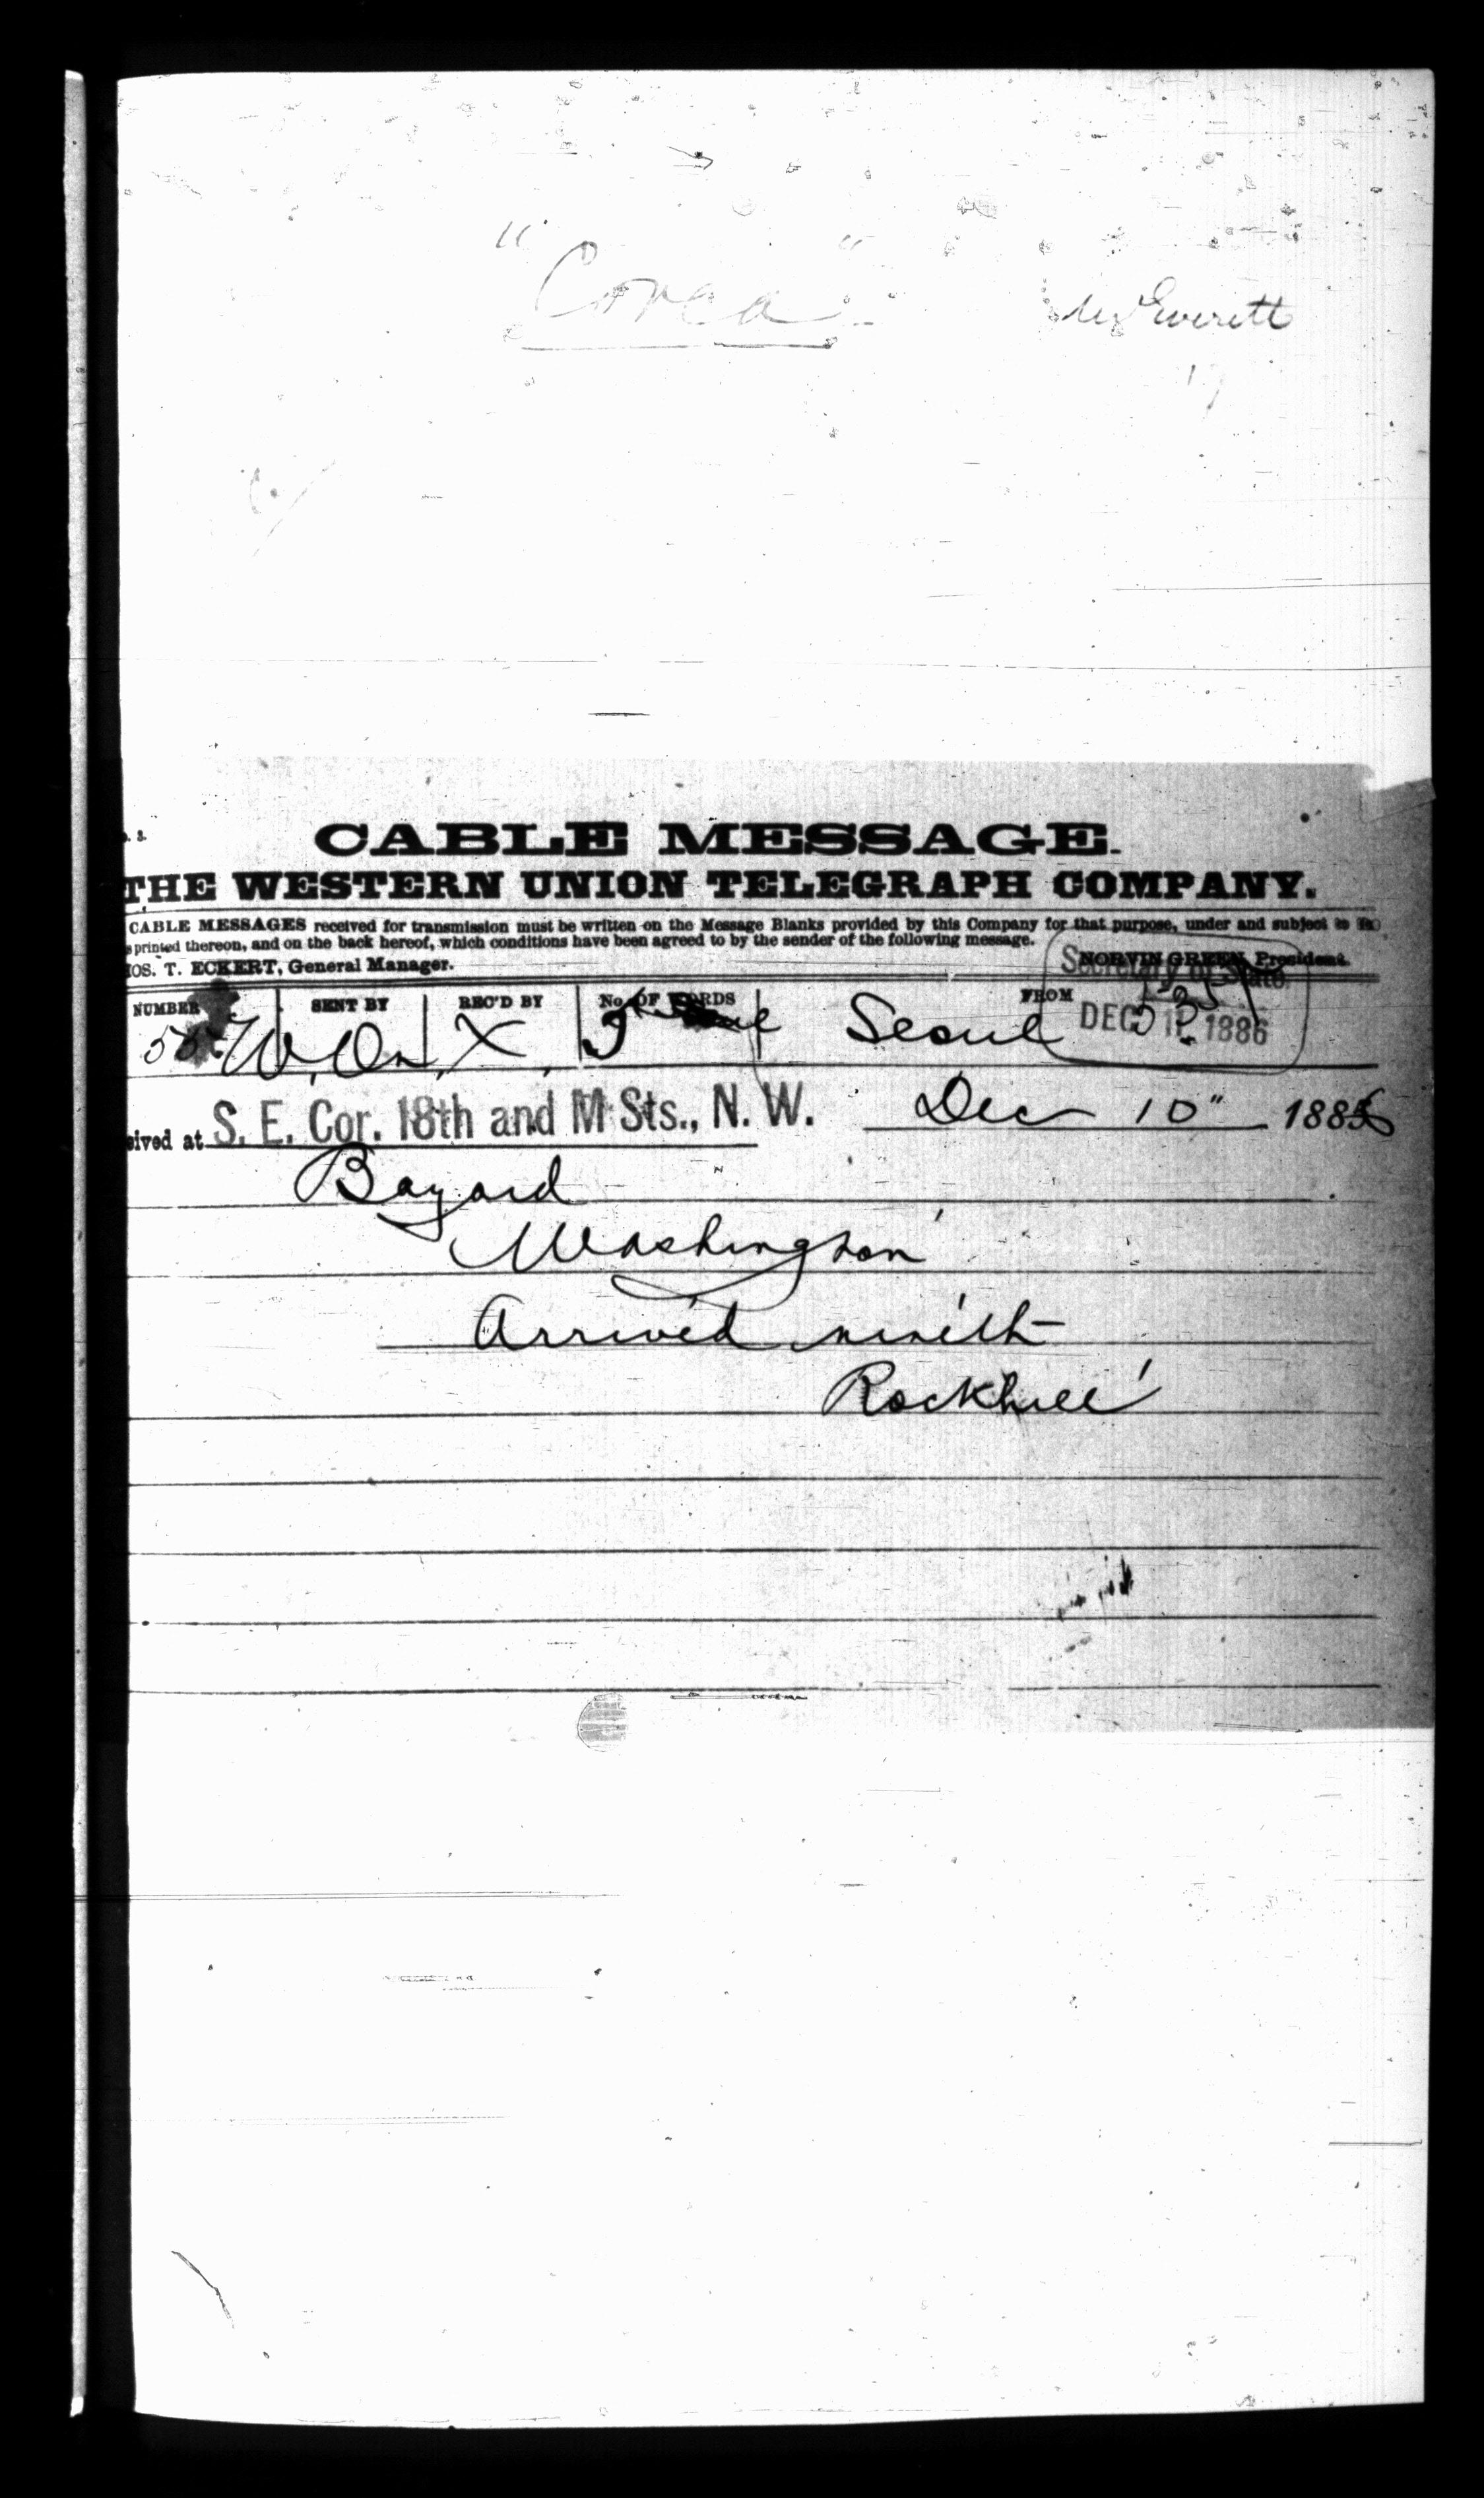 " Corea "
Mr Everett
CABLE MESSAGE.
THE WESTERN UNION TELEGRAPH COMPANY.
CABLE MESSAGES received for transmission must be written on the Message Blanks provided by this Company for that purpose, under and subject to
printed thereon, and on the back hereof, which conditions have been agreed to by the sender of the following message.
HOS. T. ECKERT, General Manager. NORVIN GREEN, President.
Secretary of State
NUMBER SENT BY REC'D BY No. OF WORDS FROM
W. On. X. Seoul
DEC 1886
eived at S. E. Cor. 18th and M Sts., N. W. Dec 10" 1886
Bayard
Washington
Arrived ninth
Rockhill